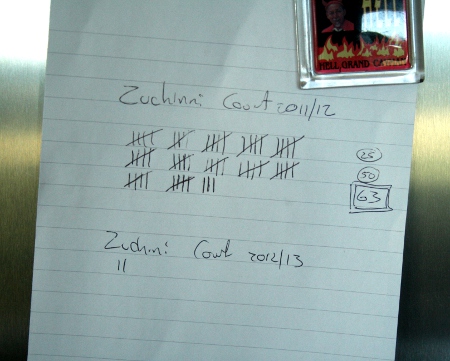 HELL GRAND CAYMAN
Zuchinni Count 2011/12
25
50
63
Zuchini Count 2012/13